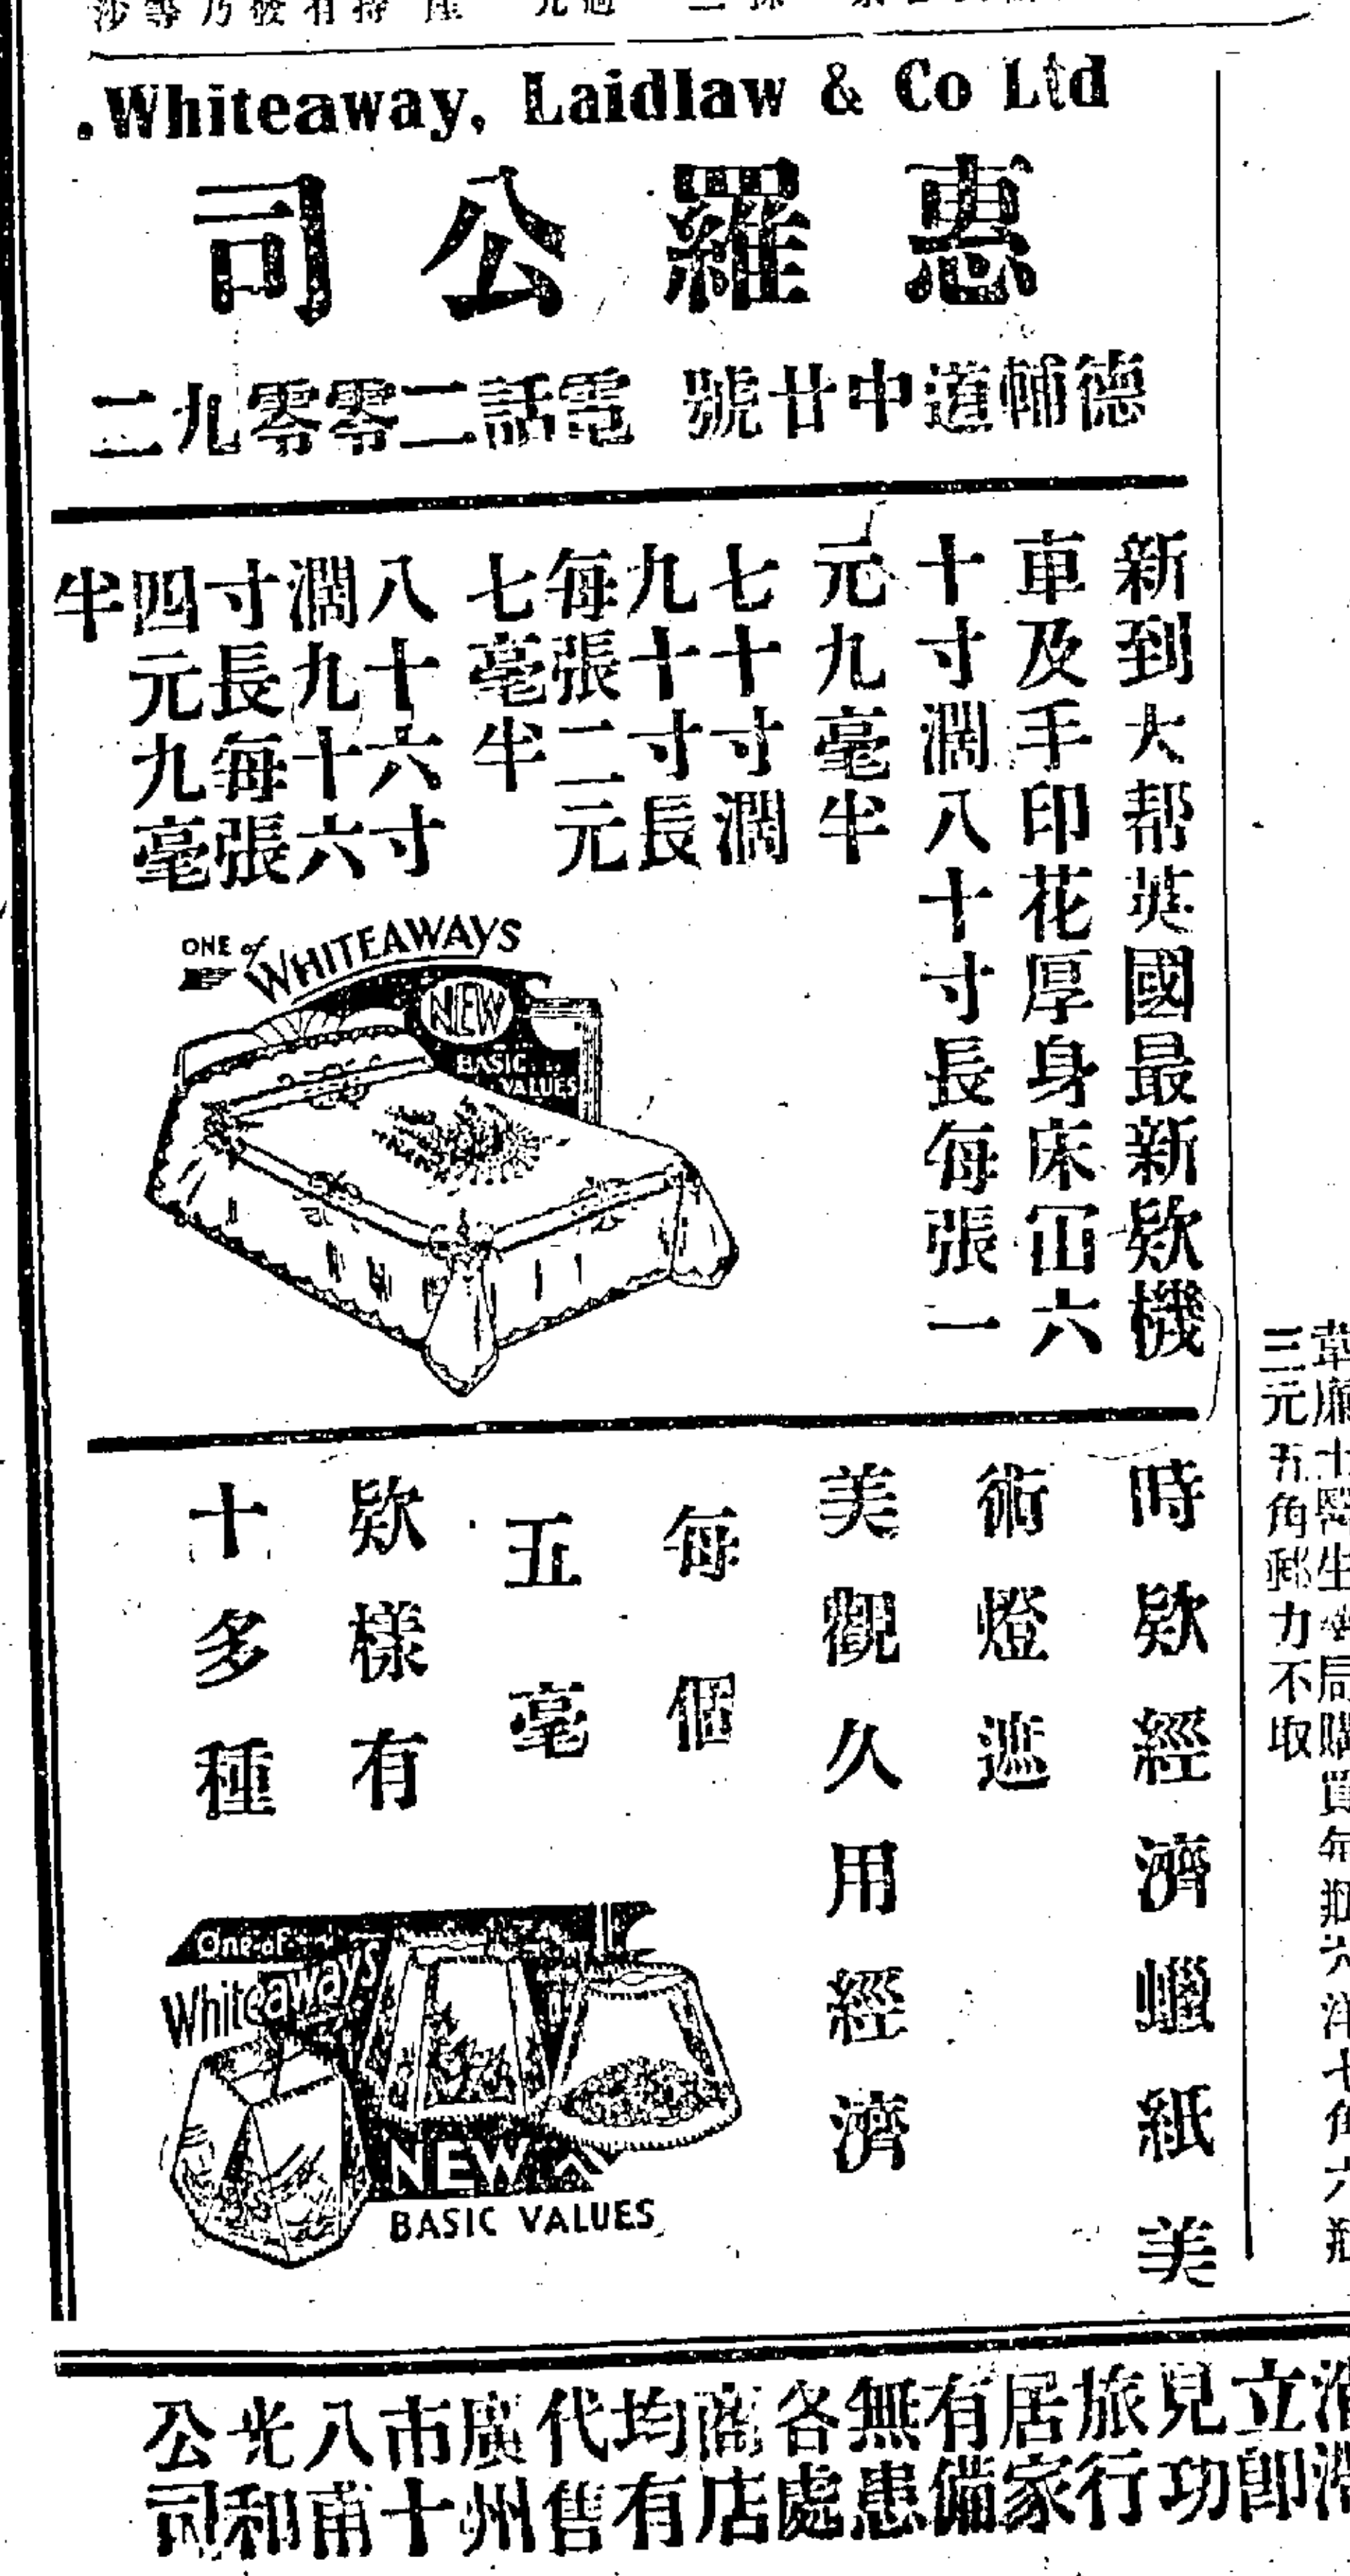 Whiteaway, Laidlaw & Co Ltd.
惠羅公司
德輔道中廿號 電話二零零九二
新到大帮英國最新欵機
車及手印花厚身床冚六
十寸濶八十寸長每張一
元九毫半
七十寸濶
九十寸長
每張二元
七毫半
八十六寸
濶九十六
寸長每張
四元九毫
半
ONE of
WHITEAWAYS
NEW
BASIC
VALUES
時欵經濟蠟紙美
術燈遮
美觀久用經濟
每個
五毫
欵樣有
十多種
One of
Whiteaways
NEW
BASIC VALUES
三元五角郵力不取
立卽
見功
旅行
居家
有備
無患
各處
商店
均有
代售
廣州
市十
八甫
光和
公司